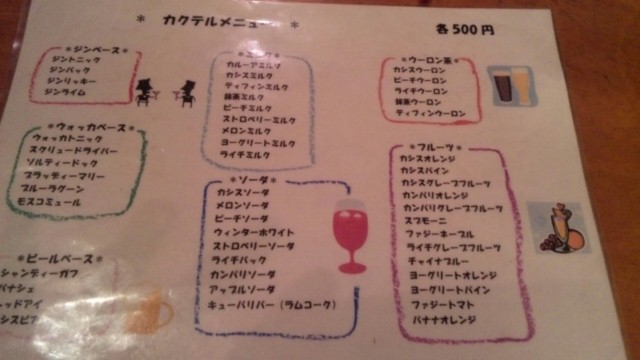 * カクテルメニュー *
各500円
*ジンベース*
ジントニック
ジンバック
ジンリッキー
ジンライム
*ウォッカベース*
ウォッカトニック
スクリュードライバー
ソルティードック
ブラッディーマリー
ブルーラグーン
モスコミュール
*ビールベース*
シャンディーガフ
パナシェ
レッドアイ
カルーアミルク
カシスミルク
ティフィンミルク
抹茶ミルク
ピーチミルク
ストロベリーミルク
メロンミルク
ヨーグリートミルク
ライチミルク
*ソーダ*
カシスソーダ
メロンソーダ
ピーチソーダ
ウィンターホワイト
ストロベリーソーダ
ライチバック
カンパリソーダ
アップルソーダ
キューバリバー(ラムコーク)
*ウーロン茶*
カシスウーロン
ピーチウーロン
ライチウーロン
抹茶ウーロン
ティフィンウーロン
*フルーツ*
カシスオレンジ
カシスパイン
カシスグレープフルーツ
カンパリオレンジ
カンパリグレープフルーツ
スプモーニ
ファジーネーブル
ライチグレープフルーツ
チャイナブルー
ヨーグリートオレンジ
ヨーグリートパイン
ファジートマト
バナナオレンジ